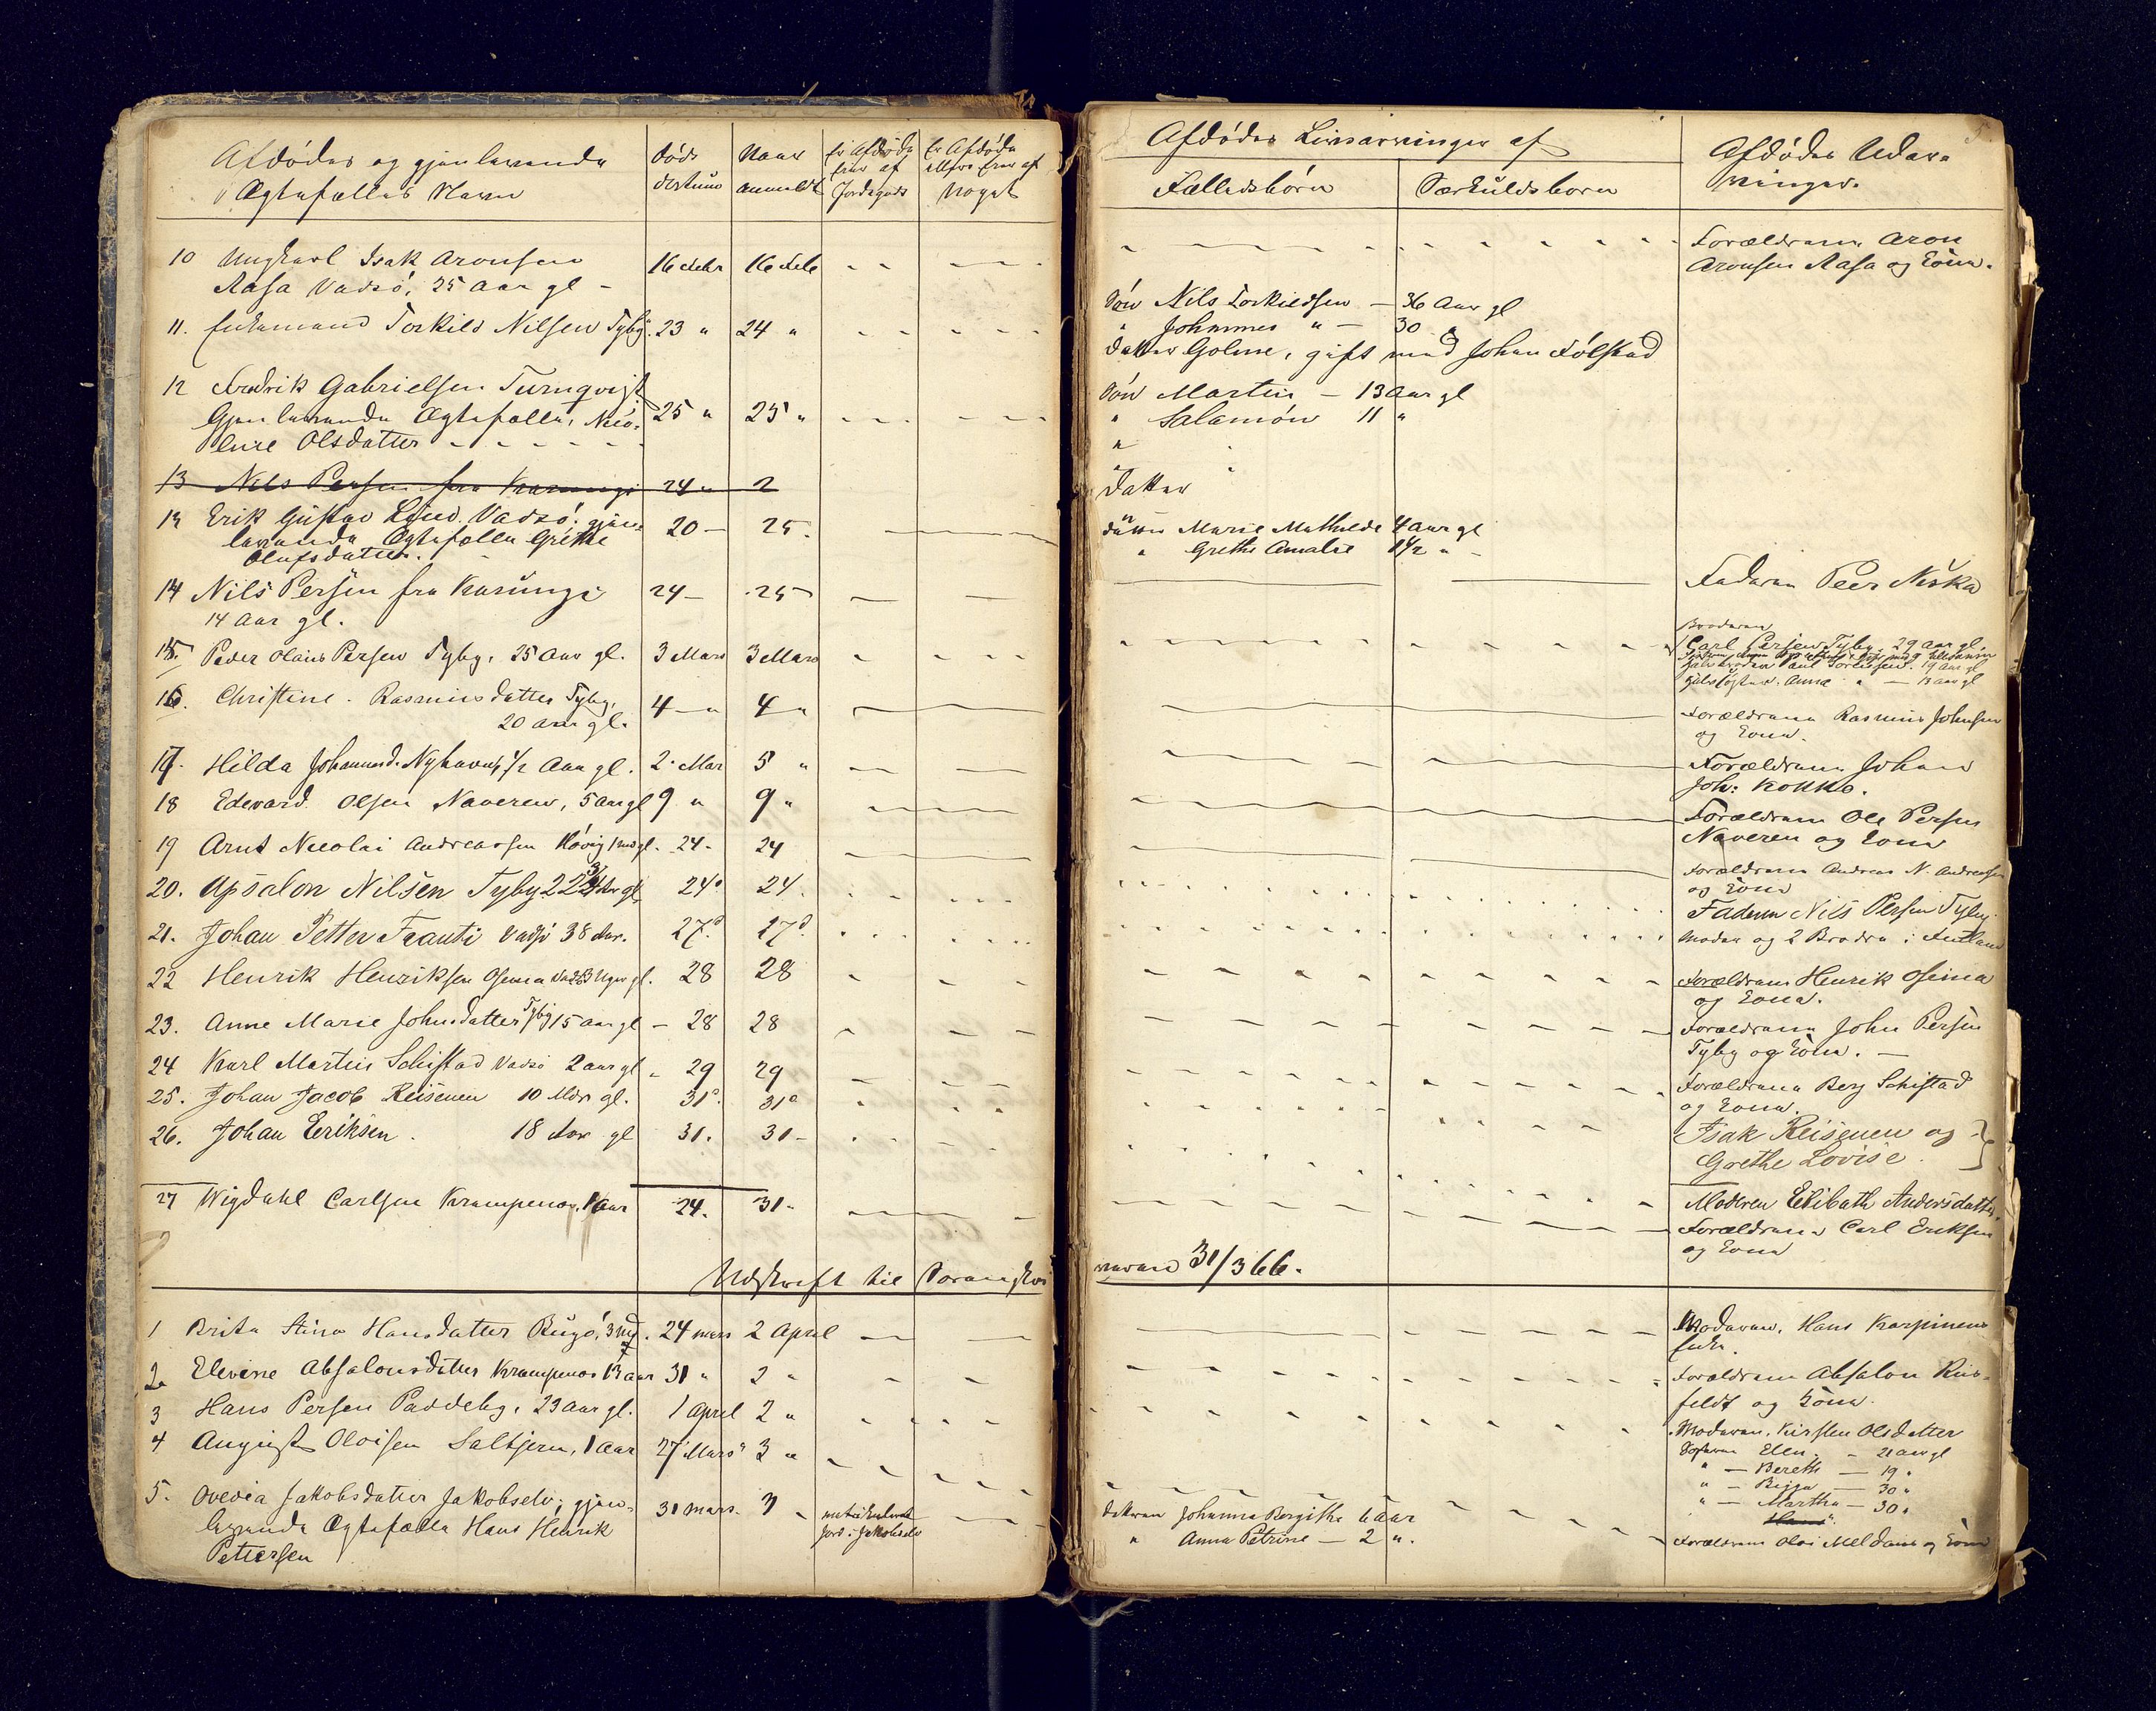 Afdødes og gjenlevende
Ægtefælles Navn
Døds
datum
Naar
anmeldt
Er Afdøde
Eier af
Jordegods
Er Afdøde
ellers Eier af
Noget
10 Ungkarl Isak Aronsen 16 Febr 16 Feb
Rasa Vadsø, 25 Aar gl
11. Enkemand Torkild Nilsen Tyby. 23 " 24 "
12 Fredrik Gabrielsen Turnqvist
Gjenlevende Ægtefælle, 25 " 25 "
Olsdatter
13 Nils Persen fra Karungi 24 " 2
13 Erik Gustav Lund. Vadsø. gjen= 20 — 25.
levende Ægtefælle Grethe
Olufsdatter.
14 Nils Persen fra Karungi 24 — 25
14 Aar gl.
15. Peder Olaus Persen Tyby, 25 Aar gl. 3 Mars 3 Mars
16. Christine Rasmusdatter Tyby, 4 — " 4 "
20 Aar gl.
17. Hilda Johannesd. Nyhavn, 1/2 Aar gl. 2. Mar 5 "
18 Edevard Olsen Naveren, 5 Aar gl 9 " 9 "
19 Arnt Nicolai Andreassen 24. 24
20. Apsalon Nilsen Tyby 24. 24.
21. Johan Petter Frauti Vadsø 38 Aar. 27. 27.
22 Henrik Henriksen Oseina gl. 28 28
23. Anne Marie Johnsdatter Tyby 15 Aar gl — 28 28
24 Karl Martin Schistad Vadsø 2 Aar gl " 29 29
25. Johan Jacob Reisenen 10 Mdr gl. 31. 31
26. Johan Eriksen. 18 Aar gl 31. 31 —
27 Wigdahl Carlsen Krampenes, 1 Aar 24. 31 "
Udskrift til Sorenskri
1 Brita Stina Hansdatter Bugø, 24 mars 2 April
2. Elevine Absalonsdatter Krampenes 13 Aar 31 " 2 "
3 Hans Persen Paddeby, 23 Aar gl. 1 April 2 "
4 August Oloisen Saltjern, 1 Aar 27 Mars 3 "
5. Ovedia Jakobsdatter Jakobselv, gjen= 31 Mars. 3 "
levende Ægtefælle Hans Henrik
Pettersen
matrikuleret
Jord i Jakobselv
Afdødes Livsarvinger af
Fællesbørn
Særkuldsbørn
Afdødes Udar=
vinger.
Forældrene Aron
Aronsen Rasa og Kone.
Søn Nils Torkildsen — 36 Aar gl
" Johannes " — 30
Datter Goline, gift med Johan Følstad
Søn Martin — 13 Aar gl
" Salamon 11 "
"
Datter
Datter Marie Mathilde 4 Aar gl
" Grethe Amalie 1 1/2 "
Faderen Peer Niska
Broderen
Carl Persen Tyby, 29 Aar gl.
Halvbroder 19 Aar gl
Halvsøster Anna " — 13 Aar gl
Forældrene Rasmus Johnsen
og Kone.
Forældrene Johan
Joh: Kokko.
Forældrene Ole Persen
Naveren og Kone
Forældrene Andreas N. Andreassen
og Kone
Faderen Nils Persen Tyby
Moder og 2 Brødre i Finland
Forældrene Henrik Oseina
og Kone.
Forældrene John Persen
Tyby og Kone. —
Forældrene Berg Schistad
og Kone.
Isak Reisenen og
Grethe Lovise.
Moderen Elibath Andersdatter.
Forældrene Carl Eriksen
og Kone
veren 31/3 66.
Moderen, Hans Karpinens
Enke.
Forældrene Absalon Ris=
feldt og Kone.
Moderen, Kirsten Olsdatter
Søsteren Ellen — 21 Aar gl
" — Bereth — 19 "
" — Bigga — 30 "
" — Martha — 30 "
Forældrene Oloi Meldane og Kone
Datteren Johanna Bergitha 6 Aar
" Anna Petrine — 2 ".